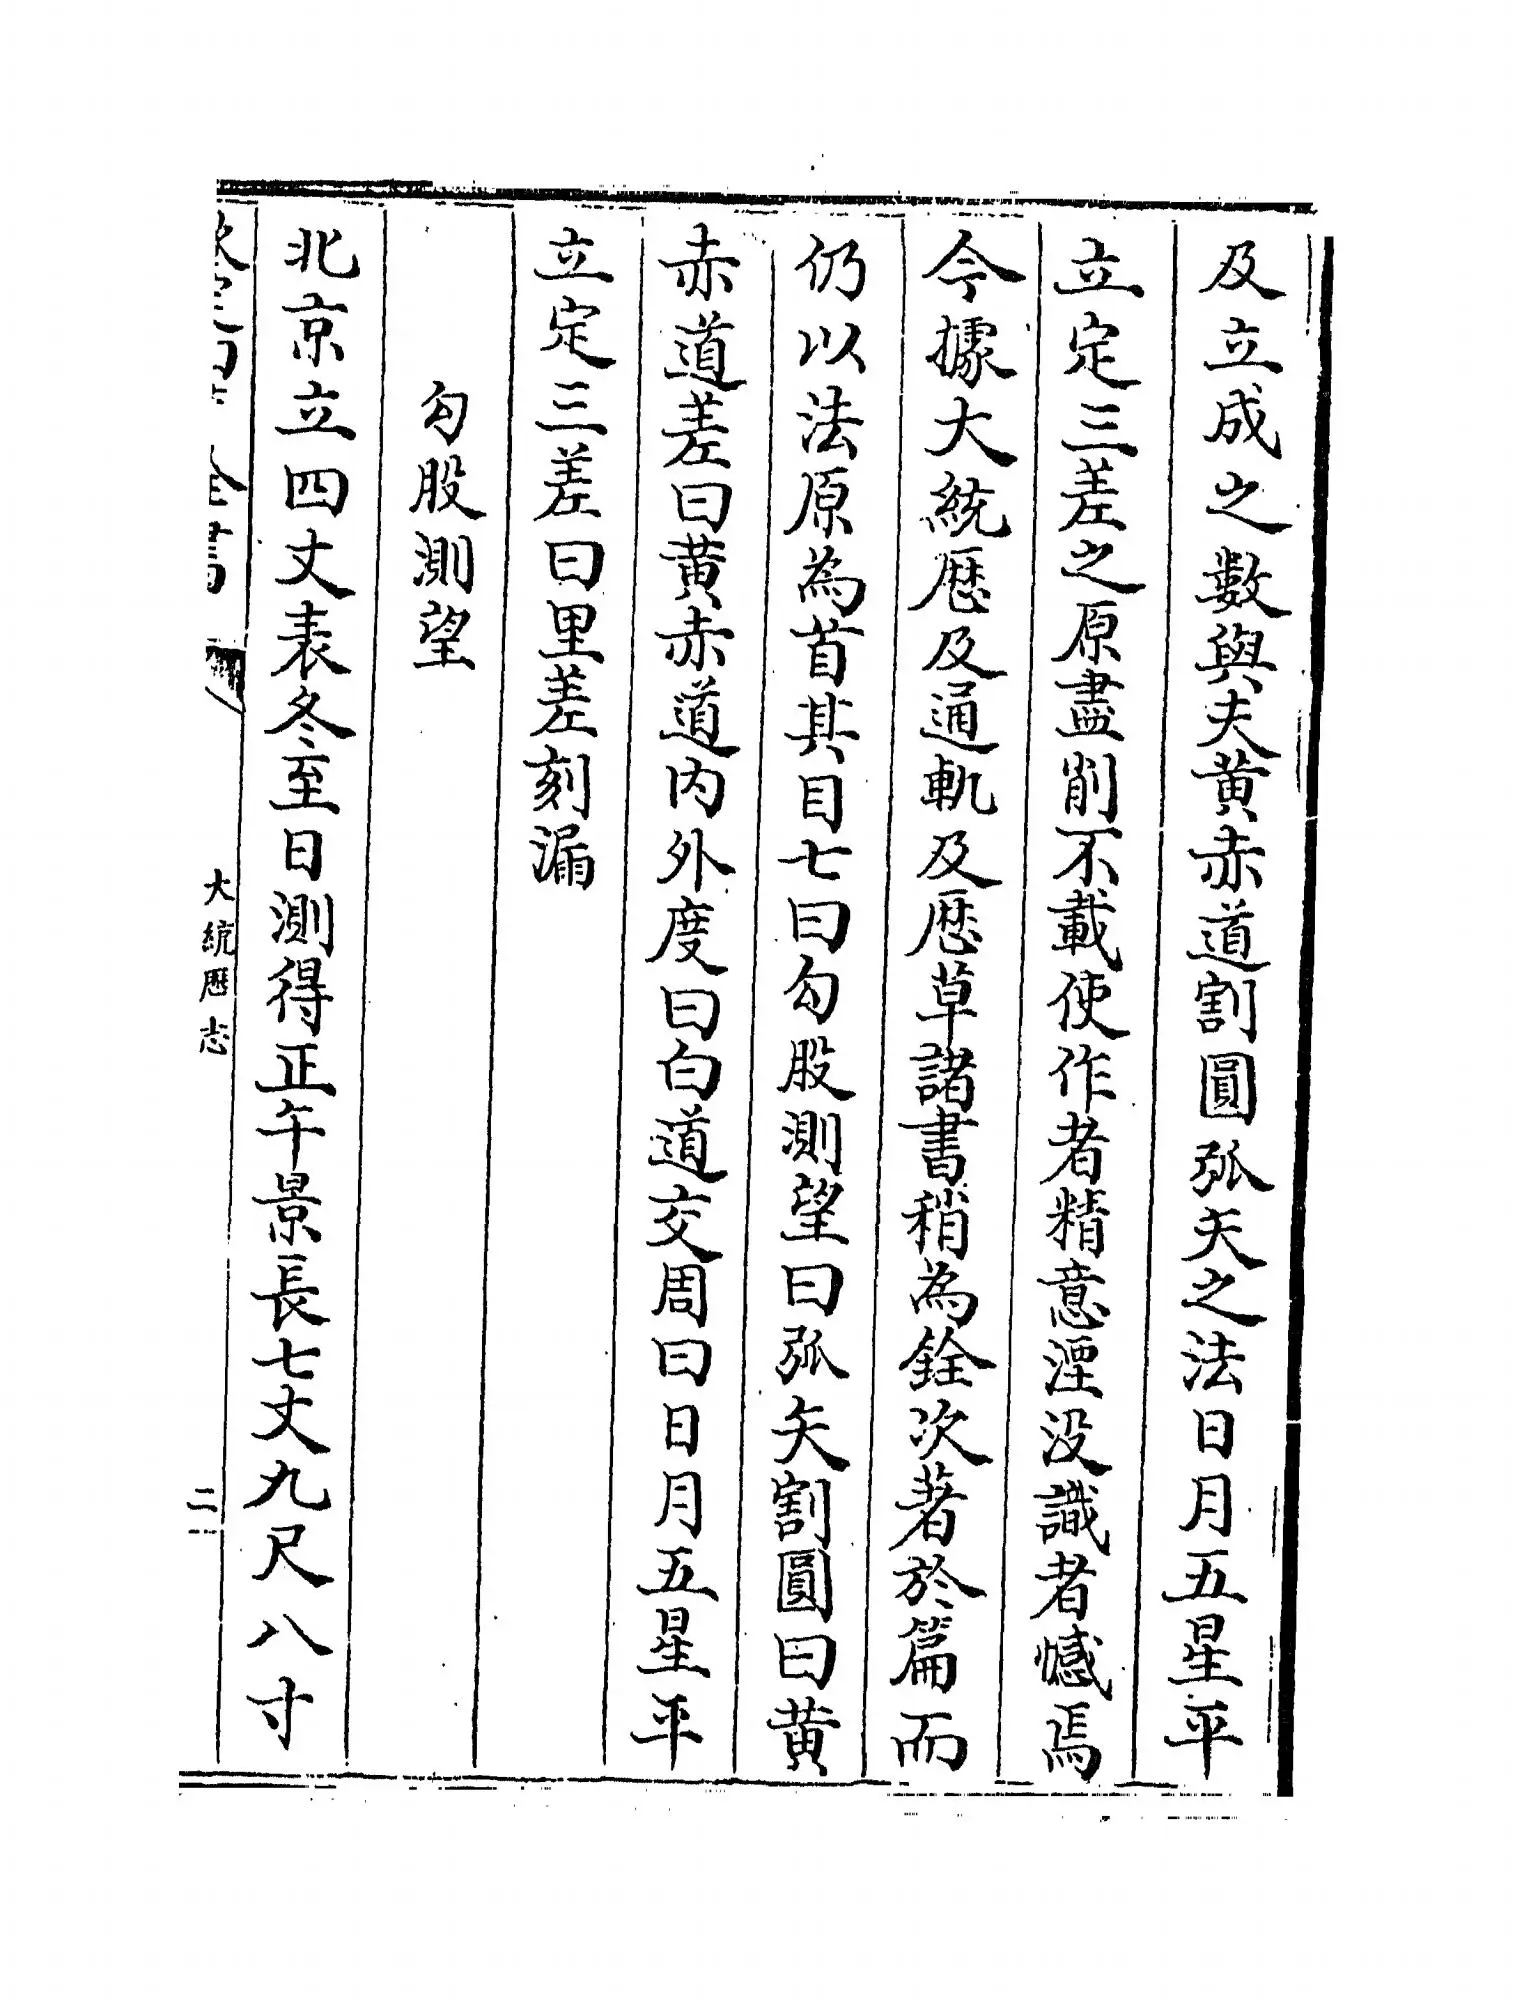 及立成之數與夫黄赤道割圓弧矢之法日月五星平
立定三差之原盡削不載使作者精意湮没識者憾焉
今據大統厯及通軌及厯草諸書稍為銓次著於篇而
仍以法原為首其目七曰勾股測望曰弧矢割圓曰黄
赤道差曰黄赤道内外度曰白道交周曰日月五星平
立定三差曰里差刻漏
勾股測望
北京立四丈表冬至日測得正午景長七丈九尺八寸
欽定四庫全書
大統厯志
二